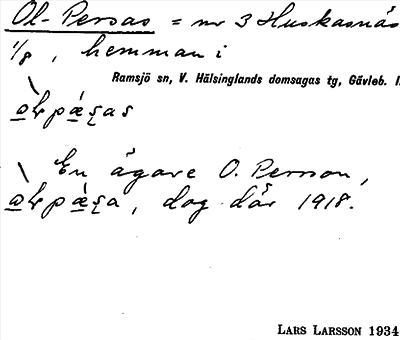 Ol-Persas = nr 3 Huskasnäs
1/8, hemman i
Ramsjö sn, V. Hälsinglands domsagas tg, Gävleb. l.
En ägare O. Persson,
dog där 1918.
LARS LARSSON 1934